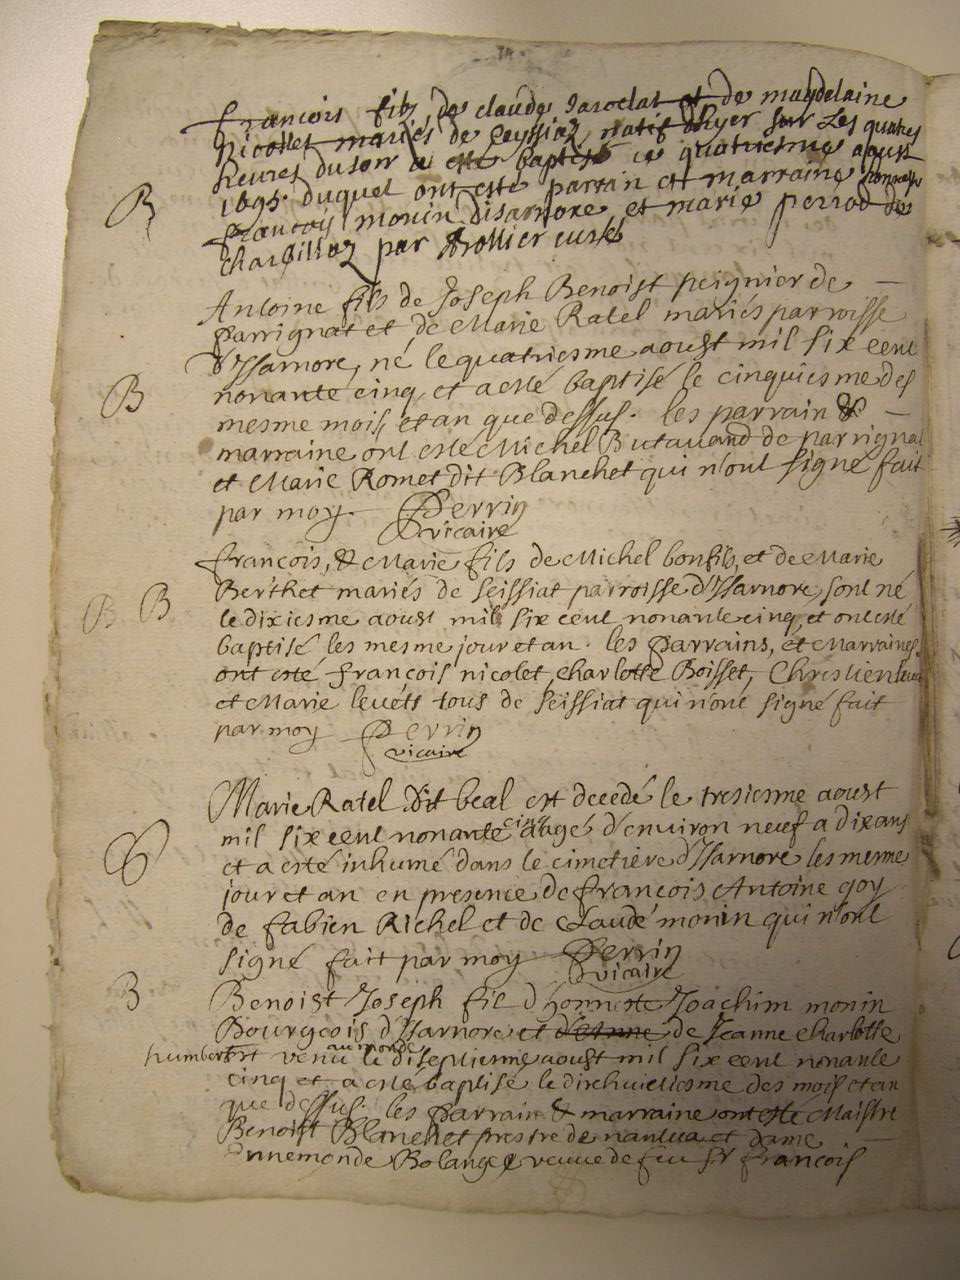 françois fils de claude Jaroclat et de magdelaine
Nicollet mariés de Ceyssiaz natif d'hyer sur Les quatres
heures du soir a esté baptisé ce quatriesme aoust
B
1695. duquel ont esté parrain et marraine honneste
françois monin disarnore et marie perrod de
charfillaz par Trollier curé
Antoine fils de Joseph Benoist peignier de
parrignat et de Marie Ratel mariés parroisse
d'Ysarnore, né le quatriesme aoust mil six cent
B
nonante cinq et a esté baptisé le cinquiesme des
mesme mois et an que dessus. les parrain &
marraine ont esté Michel Butavand de parrignat
et Marie Romet dit Blanchet qui n'ont signé fait
par moy Perrin
vicaire
françois, & Marie fils de Michel bonfils, et de Marie
Berthet mariés de seissiat parroisse d'Ysarnore, sont né
B B
le dixiesme aoust mil six cent nonante cinq, et ont esté
baptisé les mesme jour et an. les Parrains, et Marraines
ont esté françois nicolet, charlotte Boisset, Chrestien
et Marie levett tous de seissiat qui n'ont signé fait
par moy Perrin
vicaire
Marie Ratel dit beal est decedé le tresiesme aoust
mil six cent nonante cinq aagé d'environ neuf a dix ans
S
et a esté inhumé dans le cimetière d'Ysarnore les mesme
jour et an en presence de françois Antoine goy
de fabien Richel et de Claude monin qui n'ont
signé fait par moy Perrin
vicaire
B
Benoist Joseph fil d'honneste Joachim monin
Bourgeois d'Ysarnore et d'Anne de Jeanne charlotte
humbert est venu au monde le diseptiesme aoust mil six cent nonante
cinq et a esté baptisé le dixhuictiesme des mois et an
que dessus. les parrain & marraine ont esté Maistre
Benoist Blanchet prestre de nantua et dame
Annemonde Bolange veuve de feu sr françois